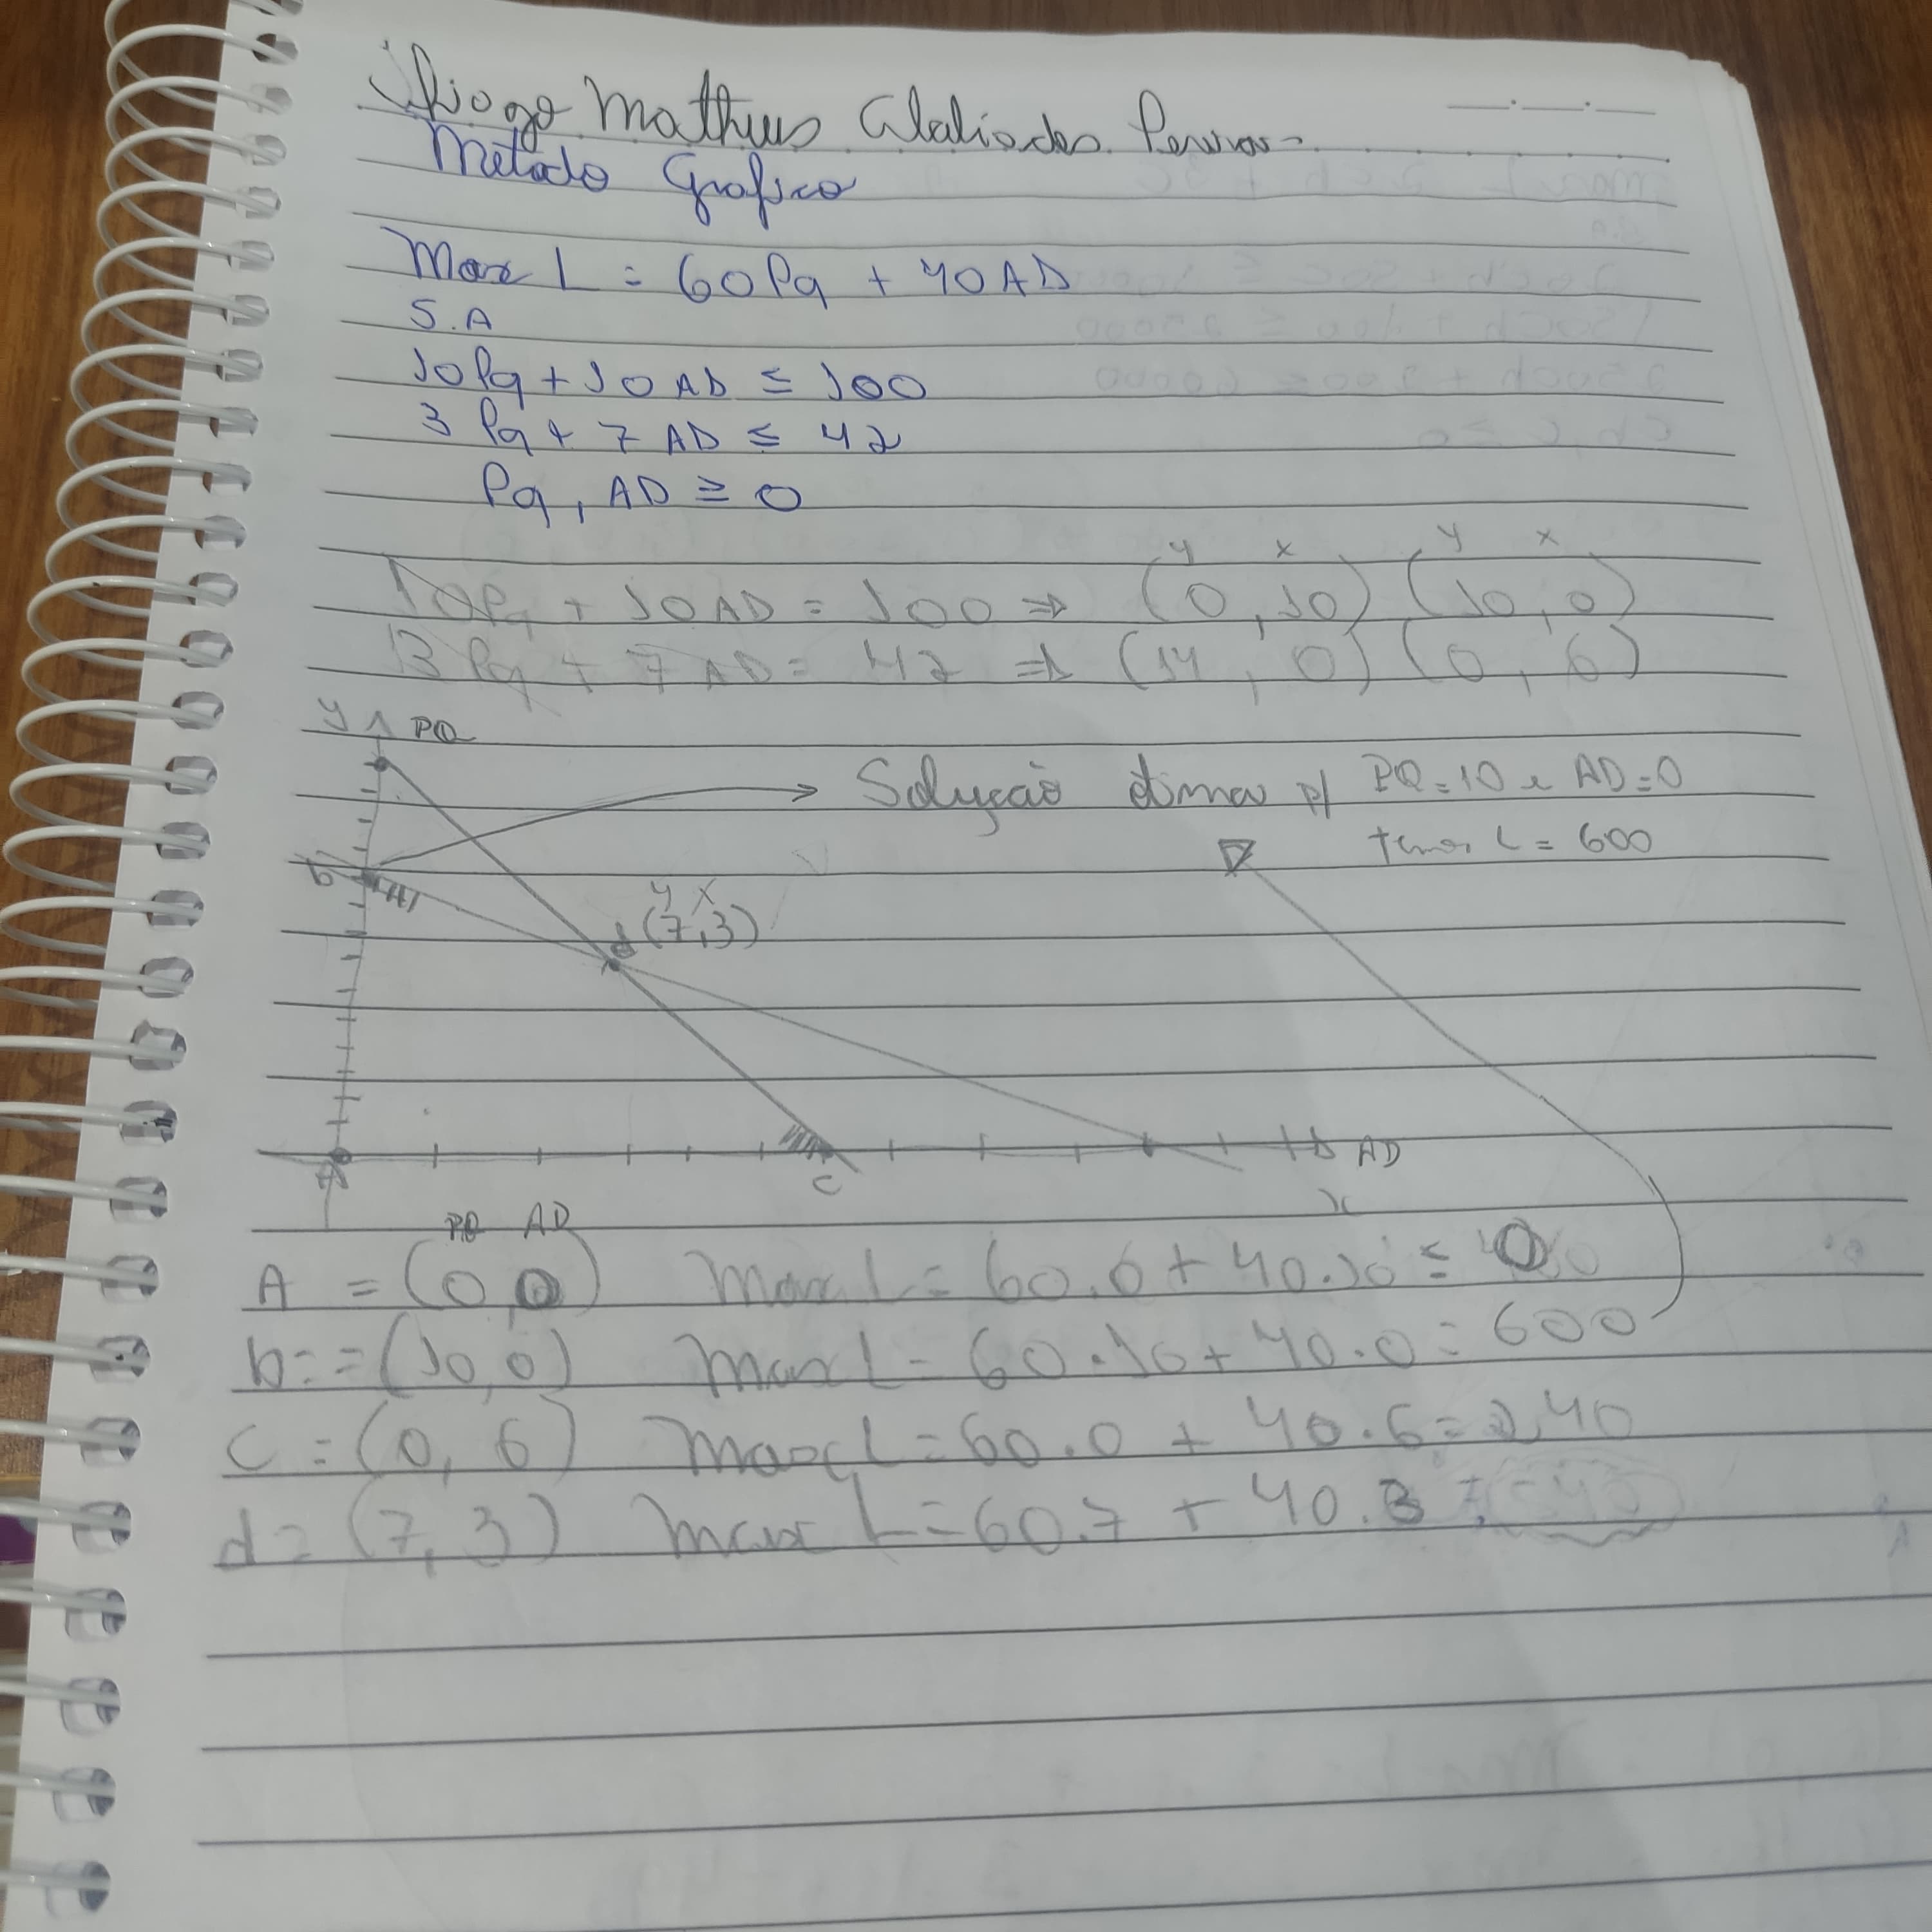 Diogo Matheus
Metodo Grafico
Max L = 60Pq + 40AD
S.A
10Pq + 10AD ≤ 100
3Pq + 7AD ≤ 42
Pq, AD ≥ 0
y x y x
10Pq + 10AD = 100 ⇒ (0, 10) (10, 0)
3Pq + 7AD = 42 ⇒ (14, 0) (0, 6)
y PQ
Solução p/ PQ=10 e AD=0
temos L = 600
b
y x
d (7,3)
A c AD
x
PQ AD
A = (0, 0) Max L = 60.0 + 40. = 0
b = = (10, 0) Max L = 60.10 + 40.0 = 600
C = (0, 6) Max L = 60.0 + 40.6 = 240
d = (7, 3) Max L = 60.7 + 40.3 = 540